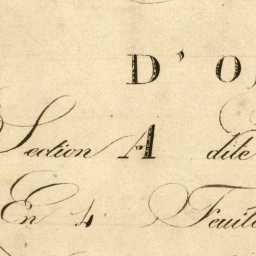 D' O
Section A dite
En 4 Feuil